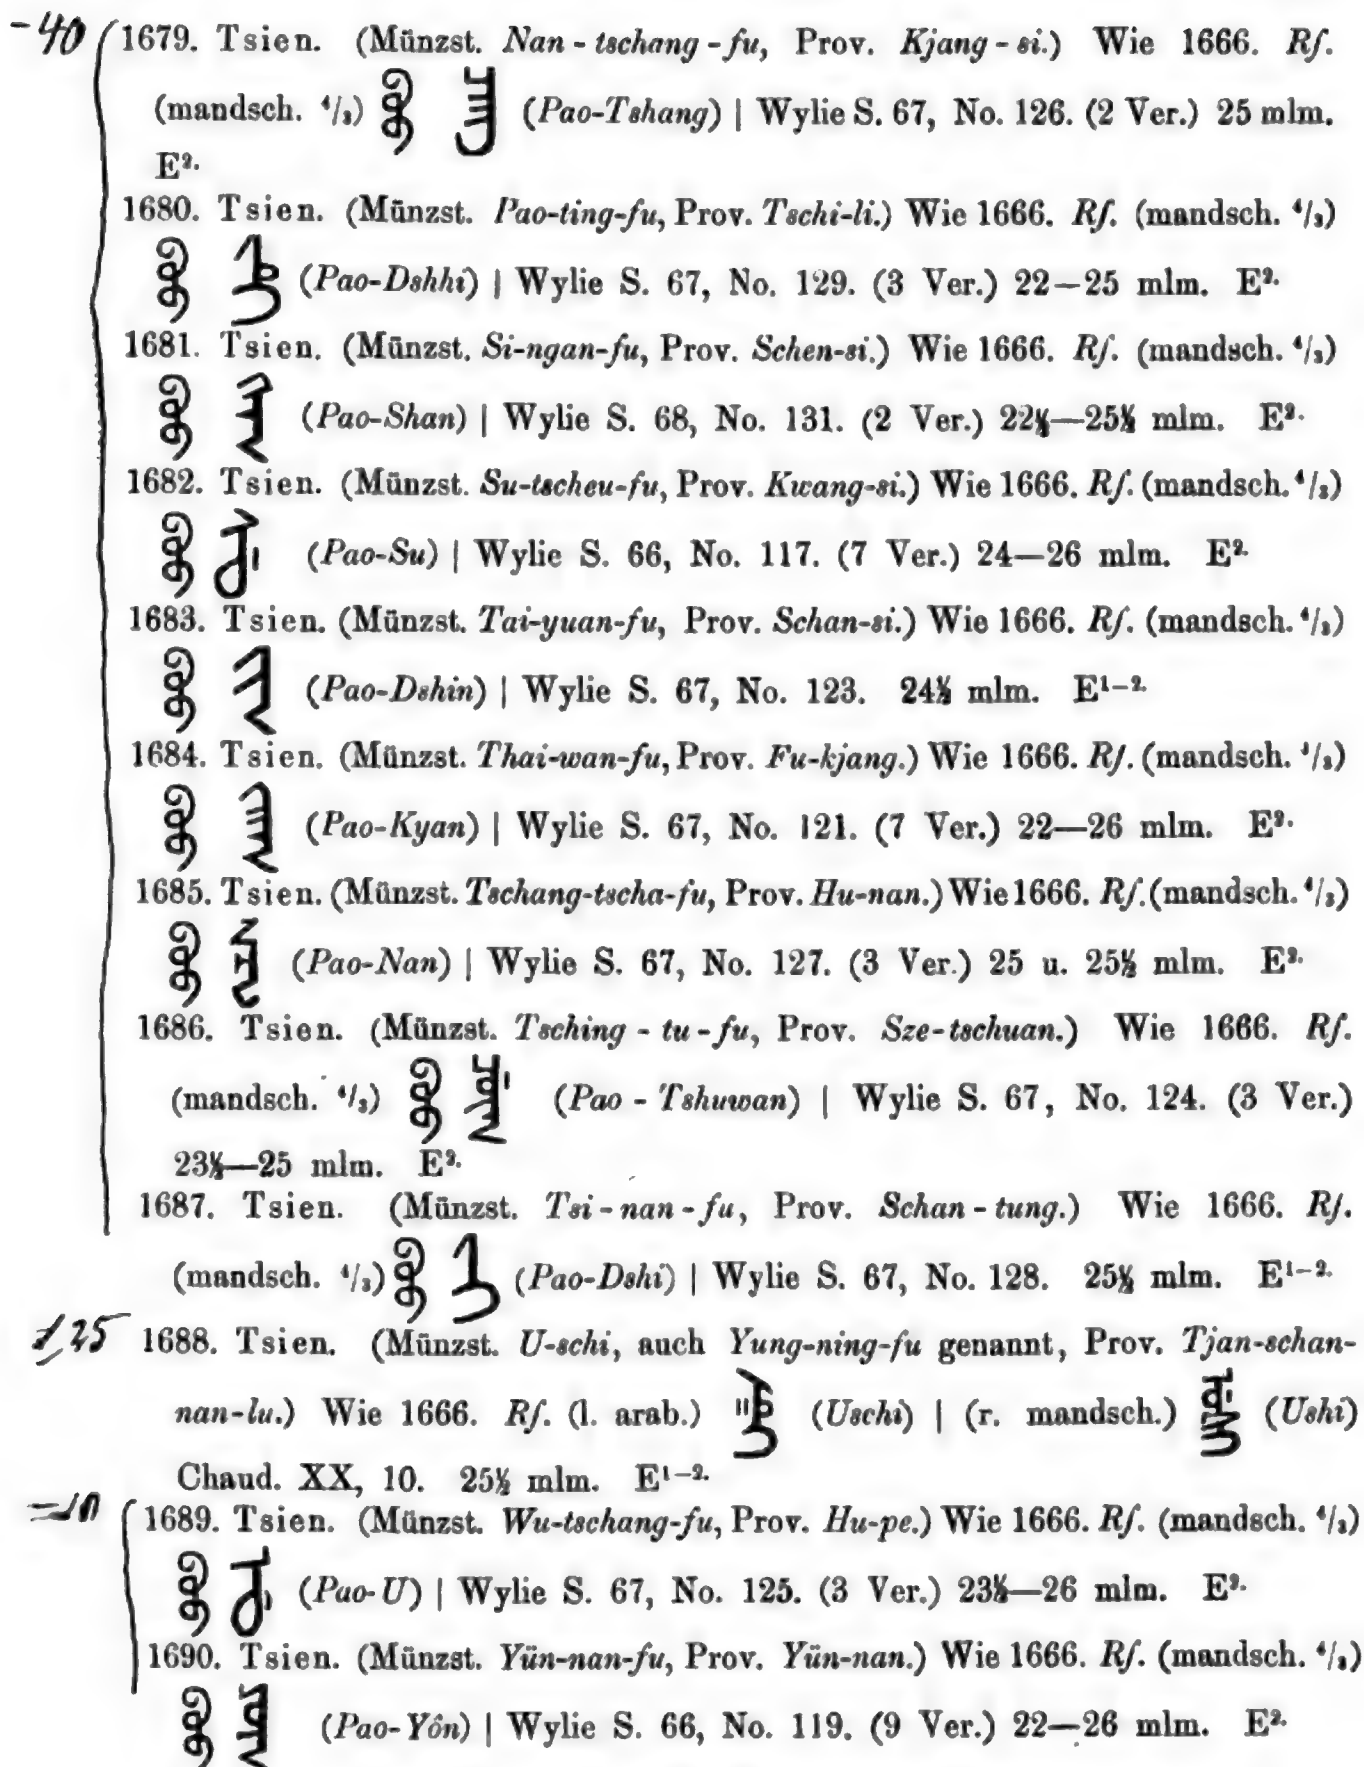 -40 1679. Tsien. (Münzst. Nan-tschang-fu, Prov. Kjang-si.) Wie 1666. Rf.
(mandsch. ⁴/₃) (Pao-Tshang) | Wylie S. 67, No. 126. (2 Ver.) 25 mlm.
E².
1680. Tsien. (Münzst. Pao-ting-fu, Prov. Tschi-li.) Wie 1666. Rf. (mandsch. ⁴/₃)
(Pao-Dshhi) | Wylie S. 67, No. 129. (3 Ver.) 22—25 mlm. E².
1681. Tsien. (Münzst. Si-ngan-fu, Prov. Schen-si.) Wie 1666. Rf. (mandsch. ⁴/₃)
(Pao-Shan) | Wylie S. 68, No. 131. (2 Ver.) 22½—25½ mlm. E².
1682. Tsien. (Münzst. Su-tscheu-fu, Prov. Kwang-si.) Wie 1666. Rf. (mandsch. ⁴/₃)
(Pao-Su) | Wylie S. 66, No. 117. (7 Ver.) 24—26 mlm. E².
1683. Tsien. (Münzst. Tai-yuan-fu, Prov. Schan-si.) Wie 1666. Rf. (mandsch. ⁴/₃)
(Pao-Dshin) | Wylie S. 67, No. 123. 24½ mlm. E¹⁻².
1684. Tsien. (Münzst. Thai-wan-fu, Prov. Fu-kjang.) Wie 1666. Rf. (mandsch. ⁴/₃)
(Pao-Kyan) | Wylie S. 67, No. 121. (7 Ver.) 22—26 mlm. E².
1685. Tsien. (Münzst. Tschang-tscha-fu, Prov. Hu-nan.) Wie 1666. Rf. (mandsch. ⁴/₃)
(Pao-Nan) | Wylie S. 67, No. 127. (3 Ver.) 25 u. 25½ mlm. E².
1686. Tsien. (Münzst. Tsching-tu-fu, Prov. Sze-tschuan.) Wie 1666. Rf.
(mandsch. ⁴/₃) (Pao-Tshuwan) | Wylie S. 67, No. 124. (3 Ver.)
23½—25 mlm. E².
1687. Tsien. (Münzst. Tsi-nan-fu, Prov. Schan-tung.) Wie 1666. Rf.
(mandsch. ⁴/₃) (Pao-Dshi) | Wylie S. 67, No. 128. 25½ mlm. E¹⁻².
1,25 1688. Tsien. (Münzst. U-schi, auch Yung-ning-fu genannt, Prov. Tjan-schan-
nan-lu.) Wie 1666. Rf. (l. arab.) (Uschi) | (r. mandsch.) (Ushi)
Chaud. XX, 10. 25½ mlm. E¹⁻².
1689. Tsien. (Münzst. Wu-tschang-fu, Prov. Hu-pe.) Wie 1666. Rf. (mandsch. ⁴/₃)
(Pao-U) | Wylie S. 67, No. 125. (3 Ver.) 23½—26 mlm. E².
1690. Tsien. (Münzst. Yün-nan-fu, Prov. Yün-nan.) Wie 1666. Rf. (mandsch. ⁴/₃)
(Pao-Yôn) | Wylie S. 66, No. 119. (9 Ver.) 22—26 mlm. E².